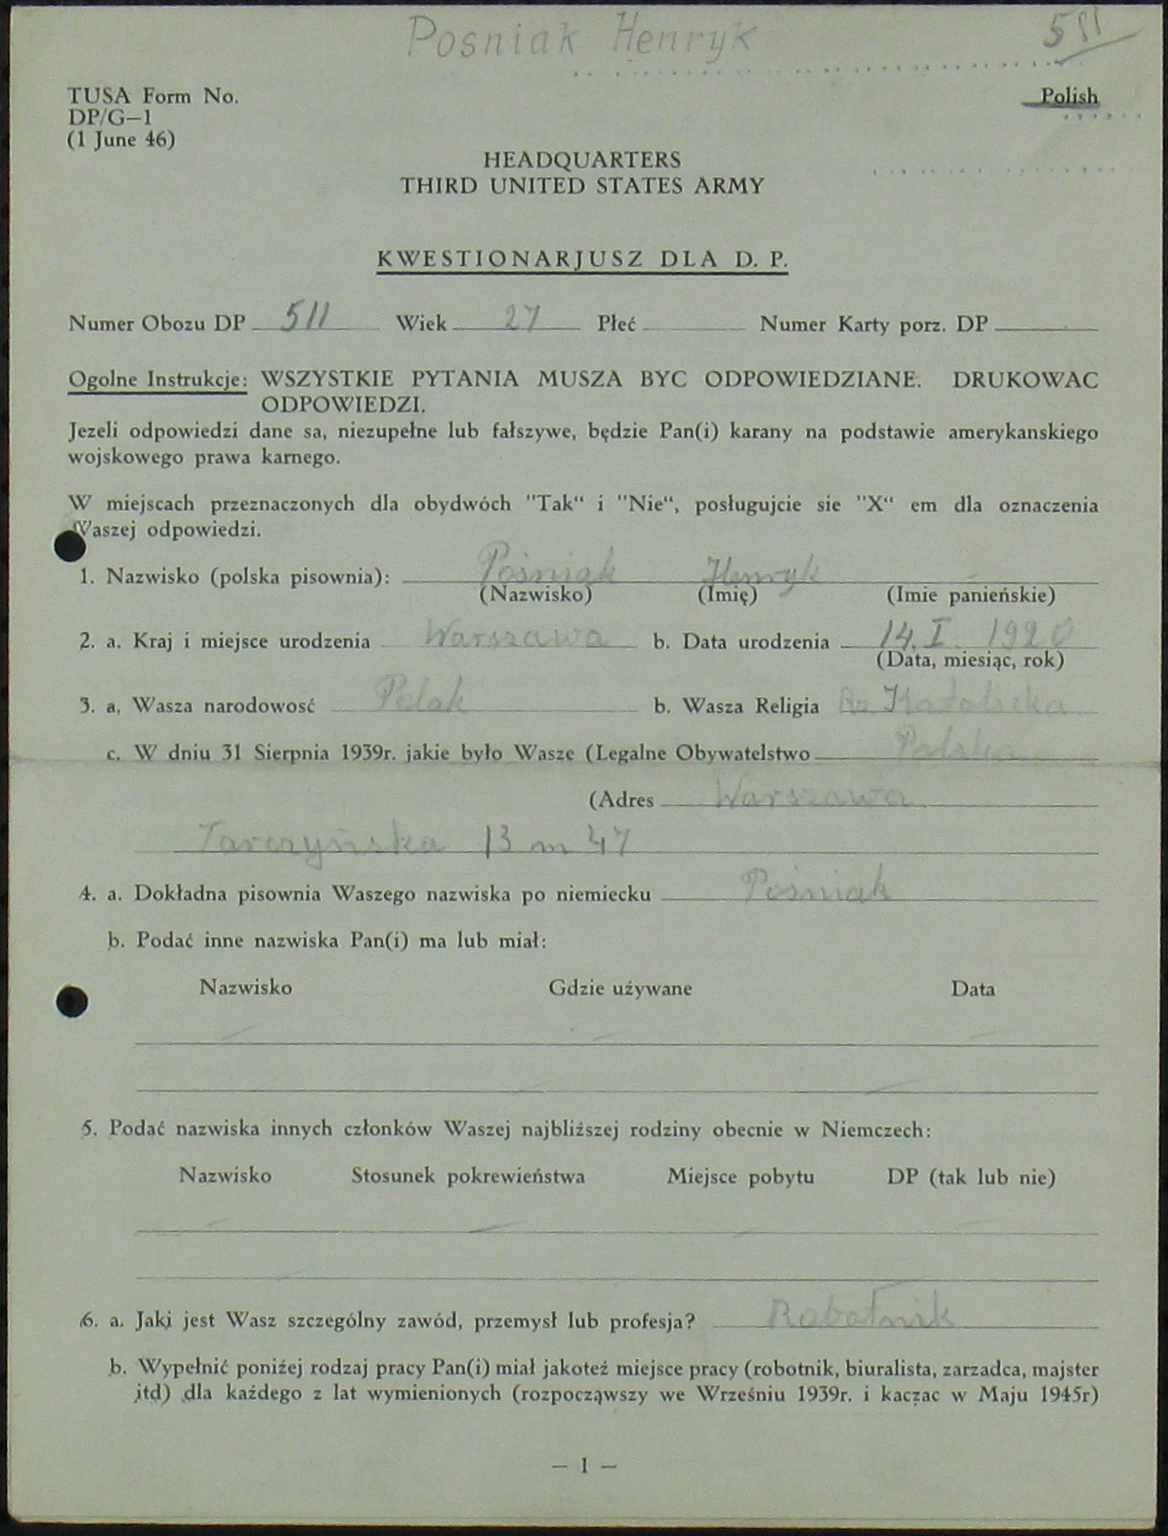 Posniak Henryk
511
TUSA Form No.
DP/G—1
(1 June 46)
Polish
HEADQUARTERS
THIRD UNITED STATES ARMY
KWESTIONARJUSZ DLA D. P.
Numer Obozu DP 511 Wiek 27 Płeć Numer Karty porz. DP
Ogolne Instrukcje: WSZYSTKIE PYTANIA MUSZA BYC ODPOWIEDZIANE. DRUKOWAC
ODPOWIEDZI.
Jezeli odpowiedzi dane sa, niezupełne lub fałszywe, będzie Pan(i) karany na podstawie amerykanskiego
wojskowego prawa karnego.
W miejscach przeznaczonych dla obydwóch "Tak“ i "Nie“, posługujcie sie "X“ em dla oznaczenia
Waszej odpowiedzi.
1. Nazwisko (polska pisownia): Pośniak Henryk
(Nazwisko) (Imię) (Imie panieńskie)
2. a. Kraj i miejsce urodzenia Warszawa b. Data urodzenia 14. I. 1920
(Data, miesiąc, rok)
3. a. Wasza narodowosć Polak b. Wasza Religia Rz. Katolicka
c. W dniu 31 Sierpnia 1939r. jakie było Wasze (Legalne Obywatelstwo Polska
(Adres Warszawa
Tarczyńska 13 m 47
4. a. Dokładna pisownia Waszego nazwiska po niemiecku Pośniak
b. Podać inne nazwiska Pan(i) ma lub miał:
Nazwisko Gdzie używane Data
5. Podać nazwiska innych członków Waszej najbliższej rodziny obecnie w Niemczech:
Nazwisko Stosunek pokrewieństwa Miejsce pobytu DP (tak lub nie)
6. a. Jaki jest Wasz szczególny zawód, przemysł lub profesja? Robotnik
b. Wypełnić poniżej rodzaj pracy Pan(i) miał jakoteż miejsce pracy (robotnik, biuralista, zarzadca, majster
itd) dla każdego z lat wymienionych (rozpocząwszy we Wrześniu 1939r. i kacząc w Maju 1945r)
— 1 —